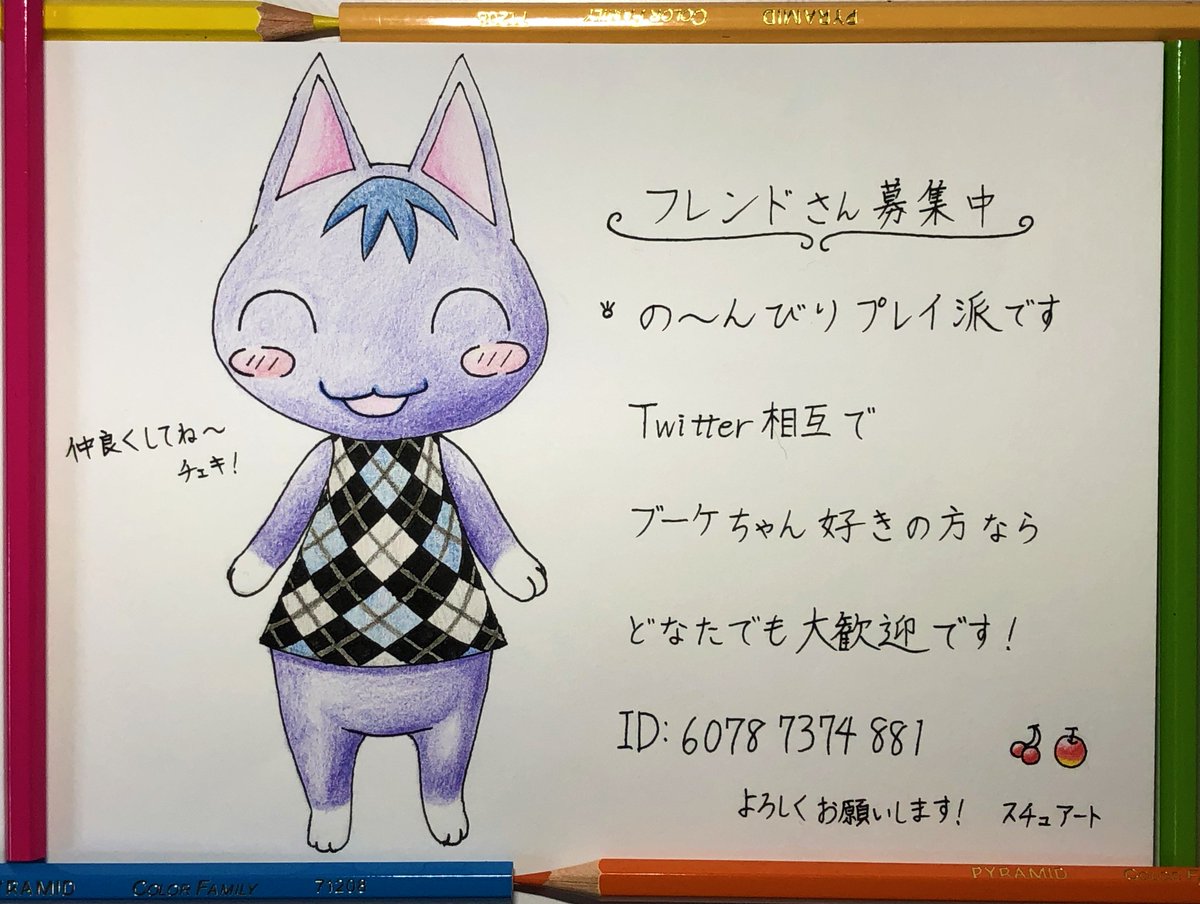 PYRAMID COLOR FAMILY 71208
フレンドさん募集中
の～んびりプレイ派です
Twitter相互で
ブーケちゃん好きの方なら
どなたでも大歓迎です!
仲良くしてね～
チェキ!
ID: 6078 7374 881
よろしくお願いします! スチュアート
PYRAMID COLOR FAMILY 71208
PYRAMID